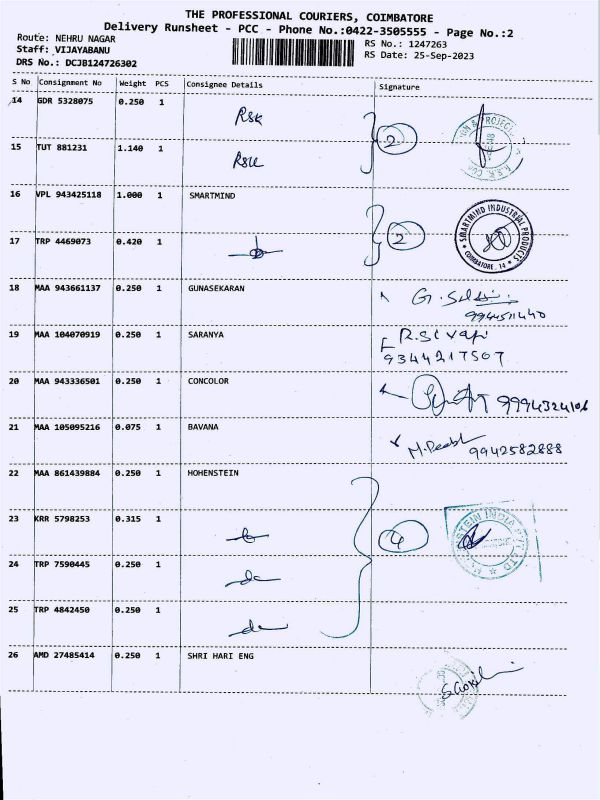 THE PROFESSIONAL COURIERS, COIMBATORE
Delivery Runsheet - PCC - Phone No.:0422-3505555 - Page No.:2
Route: NEHRU NAGAR
RS No.: 1247263
Staff: VIJAYABANU
RS Date: 25-Sep-2023
DRS No.: DCJB124726302
S No Consignment No Weight PCS Consignee Details Signature
14 GDR 5328075 0.250 1 RSK
2
15 TUT 881231 1.140 1
16 VPL 943425118 1.000 1 SMARTMIND
SMARTMIND INDUSTRIAL PRODUCTS
COIMBATORE. 14
2
17 TRP 4469073 0.420 1
18 MAA 943661137 0.250 1 GUNASEKARAN
9944511440
19 MAA 104070919 0.250 1 SARANYA
9344217507
20 MAA 943336501 0.250 1 CONCOLOR
9994324106
21 MAA 105095216 0.075 1 BAVANA
9942582888
22 MAA 861439884 0.250 1 HOHENSTEIN
23 KRR 5798253 0.315 1
4
24 TRP 7590445 0.250 1
25 TRP 4842450 0.250 1
26 AMD 27485414 0.250 1 SHRI HARI ENG